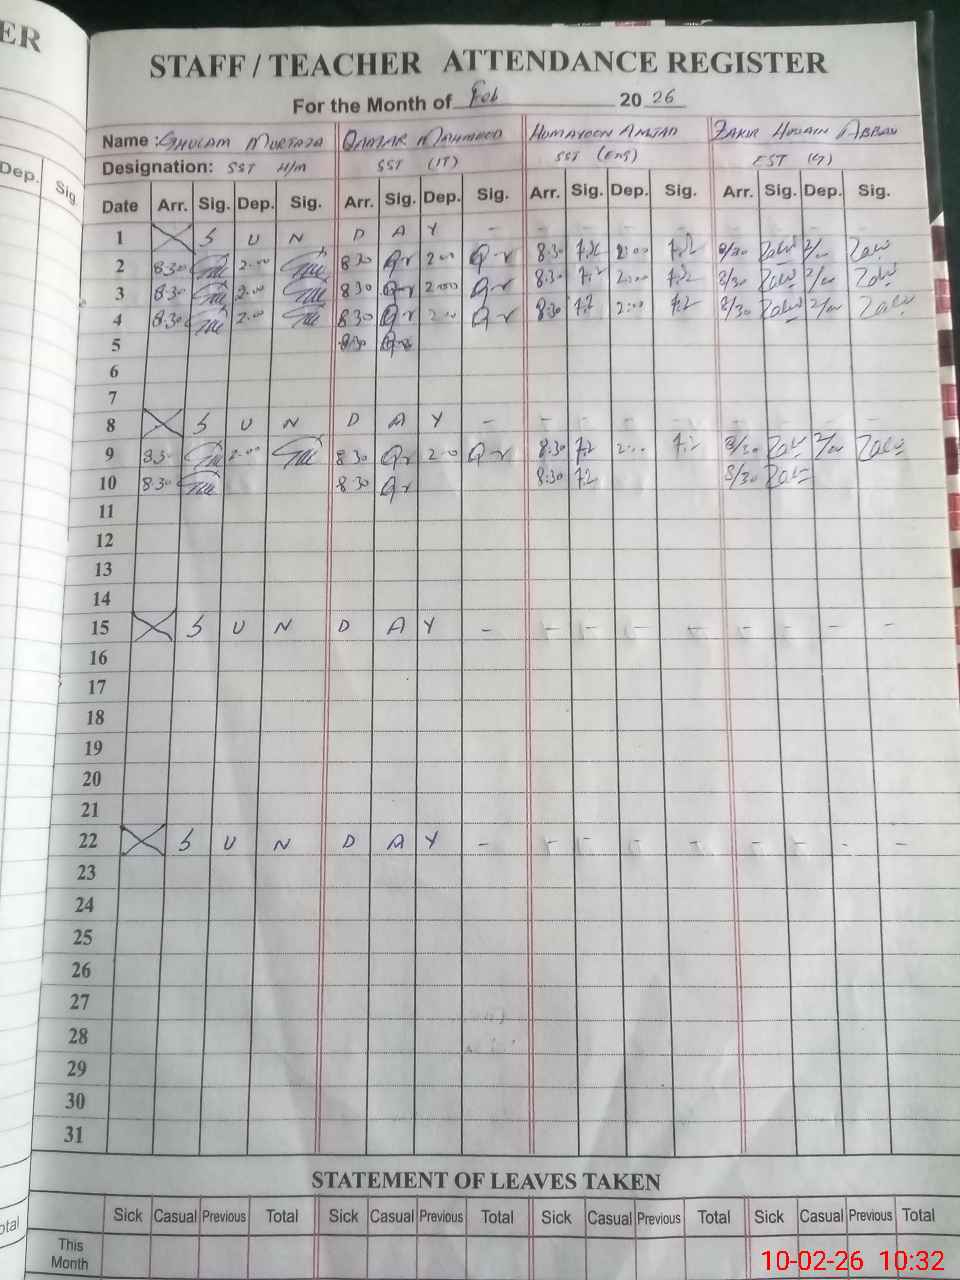 ER
STAFF / TEACHER ATTENDANCE REGISTER
For the Month of Feb 20 26
Name : GHULAM MURTAZA QAMAR MAHMOOD HUMAYOON AMJAD ZAKIR HUSAIN ABBAS
Dep. Designation: SST H/M SST (IT) SST (ENG) EST
Sig. Date Arr. Sig. Dep. Sig. Arr. Sig. Dep. Sig. Arr. Sig. Dep. Sig. Arr. Sig. Dep. Sig.
1 S U N D A Y - - - - - - - - -
2 8:30 2:00 8:30 2:00 8:30 2:00 8/30 2/00
3 8:30 2:00 8:30 2:00 8:30 2:00 8/30 2/00
4 8:30 2:00 8:30 2:00 8:30 2:00 8/30 2/00
5 8:30
6
7
8 S U N D A Y - - - - - - - - -
9 8:30 2:00 8:30 2:00 8:30 2:00 8/30 2/00
10 8:30 8:30 8:30 8/30
11
12
13
14
15 S U N D A Y - - - - - - - - -
16
17
18
19
20
21
22 S U N D A Y - - - - - - - - -
23
24
25
26
27
28
29
30
31
STATEMENT OF LEAVES TAKEN
Sick Casual Previous Total Sick Casual Previous Total Sick Casual Previous Total Sick Casual Previous Total
This
Month
10-02-26 10:32